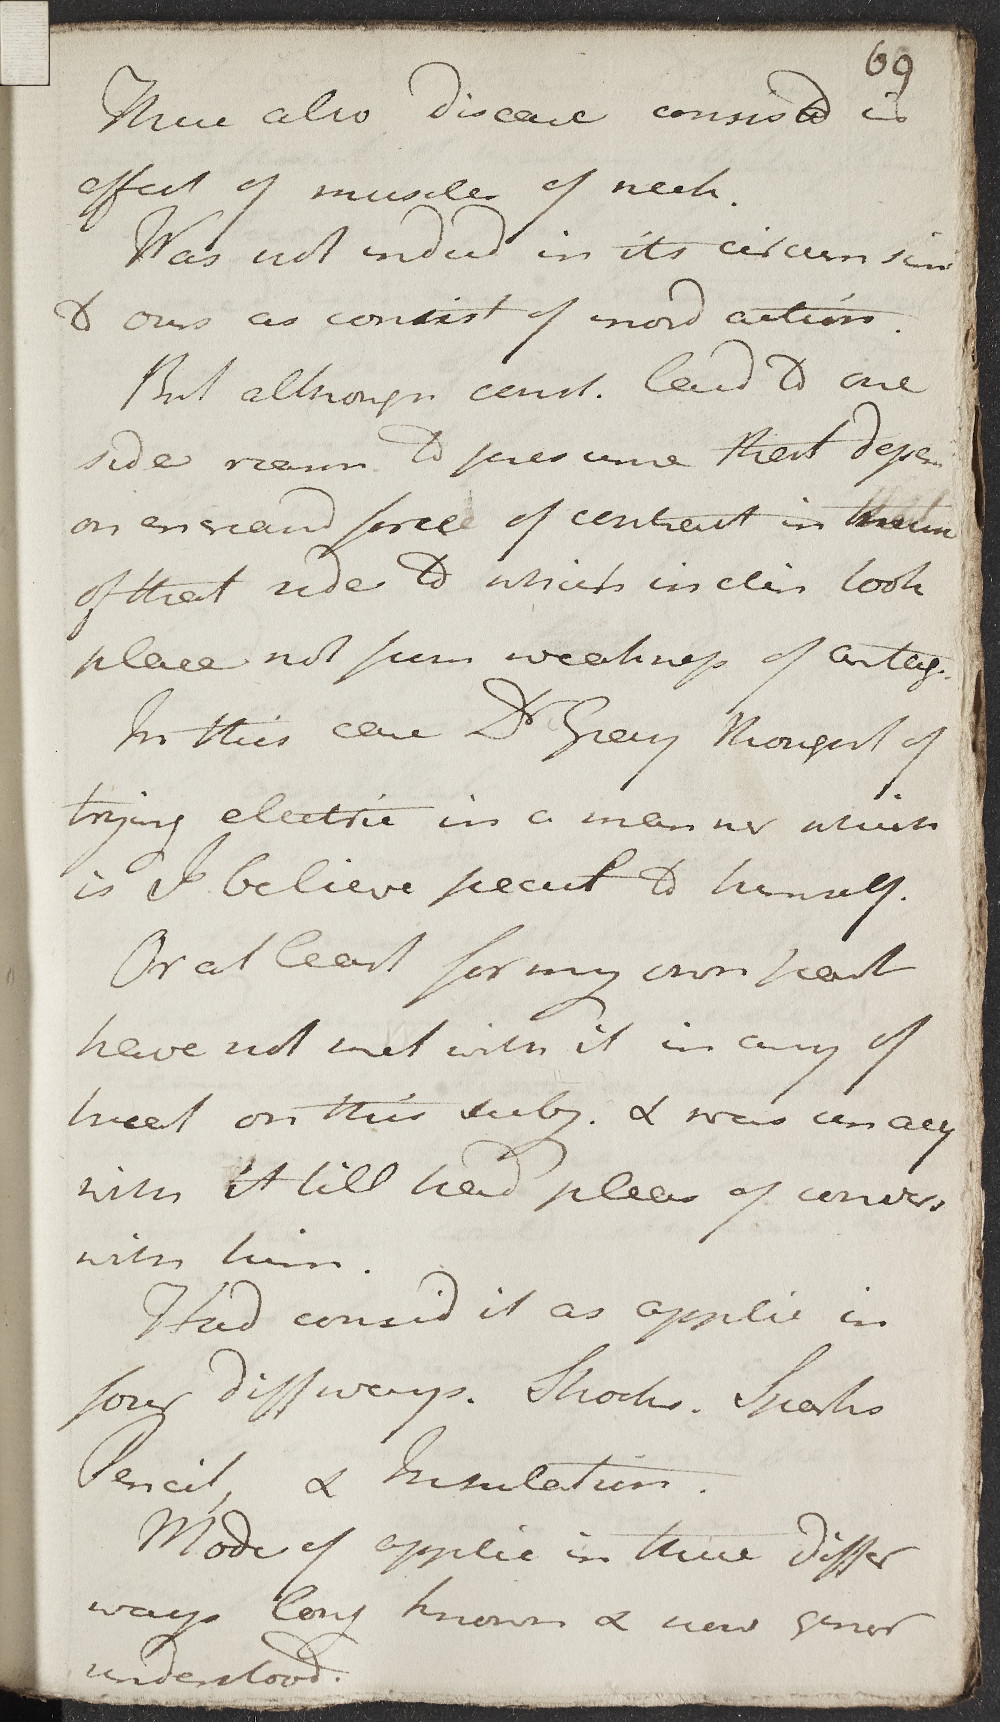 69
There also disease consisted in
affect of muscles of neck.
Was not indeed in its circum simi
to ours as consist of mord action.
But although const. lead to one
side reason to presume that depen
on encreasd force of contract in
of that side to which inclin took
place not from weakness of antag.
In this case Dr Gray thought of
trying electric in a manner which
is I believe peculi to himself.
Or at least for my own part
have not met with it in any of
treat on this subj. & was unacq
with it till had pleas of convers
with him.
Had consid it as applic in
four diff ways. Shocks. Sparks
Pencil, & Insulation.
Mode of applic in these differ
ways long known & now gener
understood.